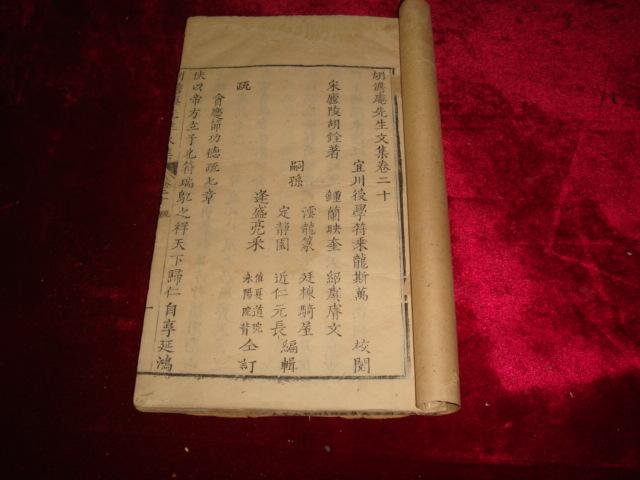 胡澹庵先生文集卷二十
宜川後學符乘龍斯萬 校閱
宋廬陵胡銓著
鍾蘭映奎 紹虞膚文
嗣孫 澐龍篆 廷棟騎屋 編輯
定靜園 近仁元長
逢盛亮采 仝訂
疏
會慶節功德疏七章
伏以帝方立子允符瑞鳦之祥天下歸仁自享延鴻